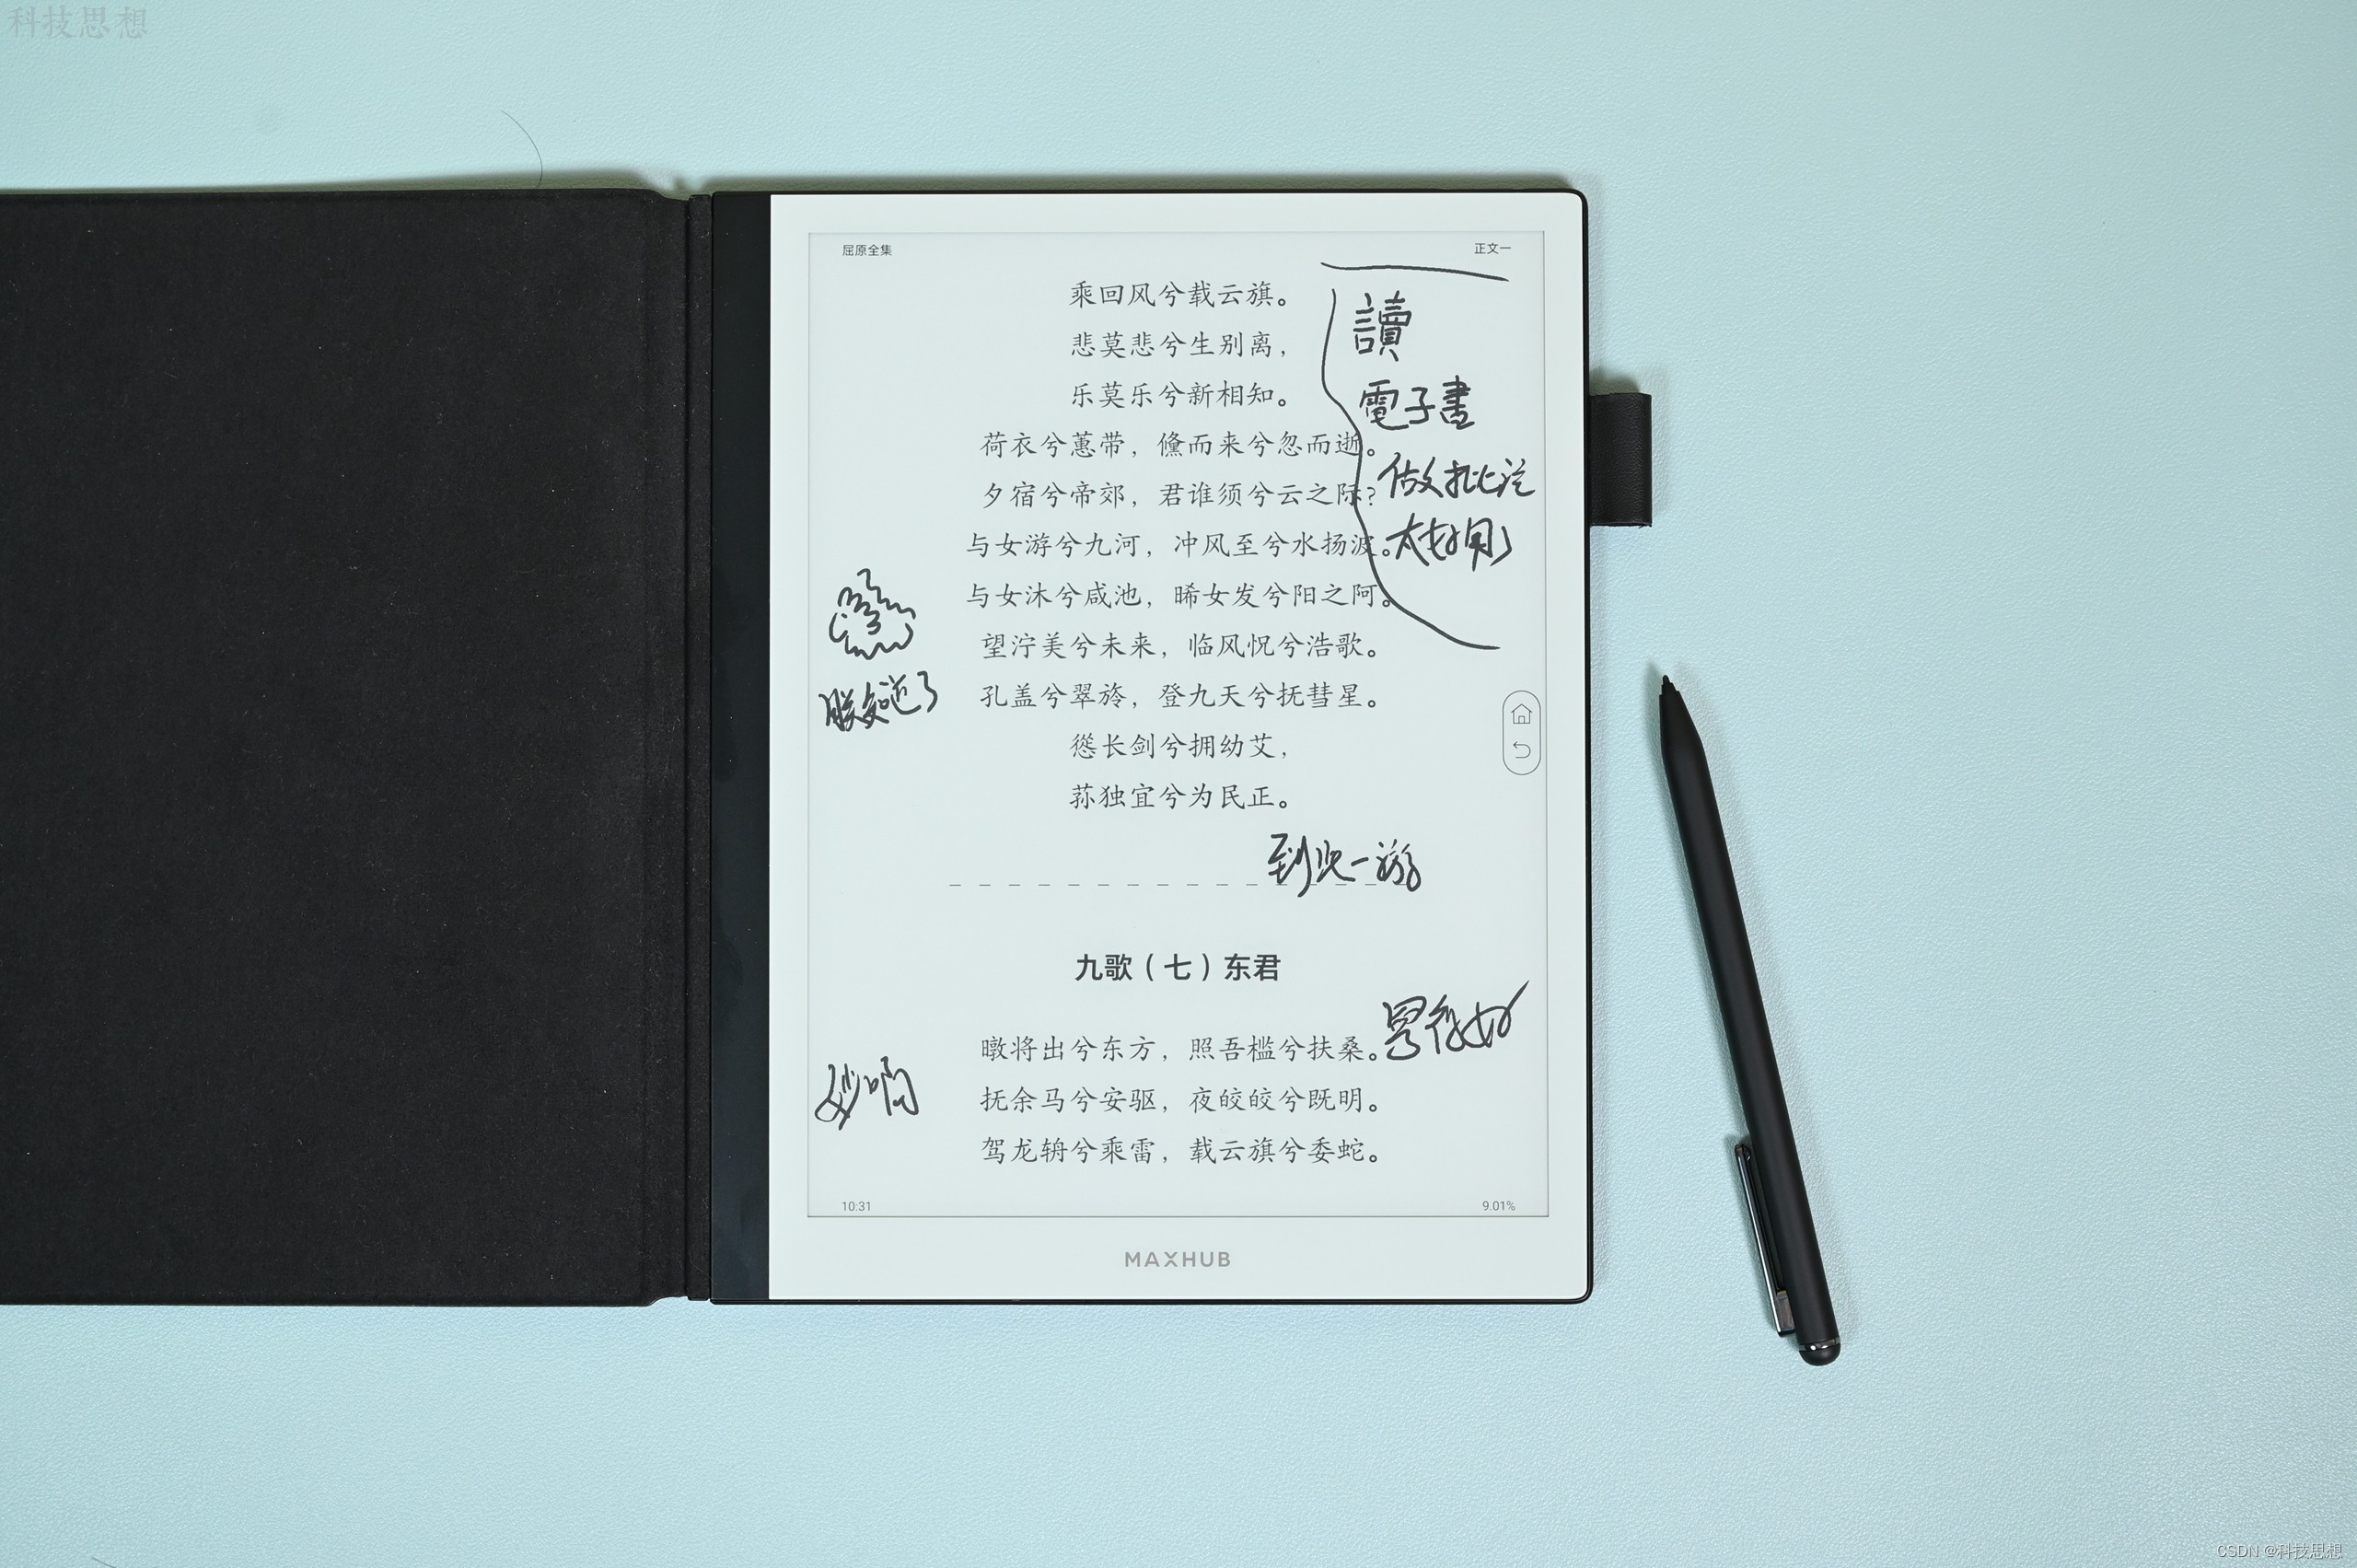 科技思想
屈原全集
正文一
乘回风兮载云旗。
悲莫悲兮生别离，
乐莫乐兮新相知。
荷衣兮蕙带，儵而来兮忽而逝。
夕宿兮帝郊，君谁须兮云之际？
与女游兮九河，冲风至兮水扬波。
与女沐兮咸池，晞女发兮阳之阿。
望泞美兮未来，临风怳兮浩歌。
孔盖兮翠旍，登九天兮抚彗星。
慫长剑兮拥幼艾，
荪独宜兮为民正。
讀
電子書
做批注
太好用
朕知道了
到此一游
九歌（七）东君
暾将出兮东方，照吾槛兮扶桑。
抚余马兮安驱，夜皎皎兮既明。
驾龙辀兮乘雷，载云旗兮委蛇。
写得好
妙啊
10:31
9.01%
MAXHUB
CSDN @科技思想